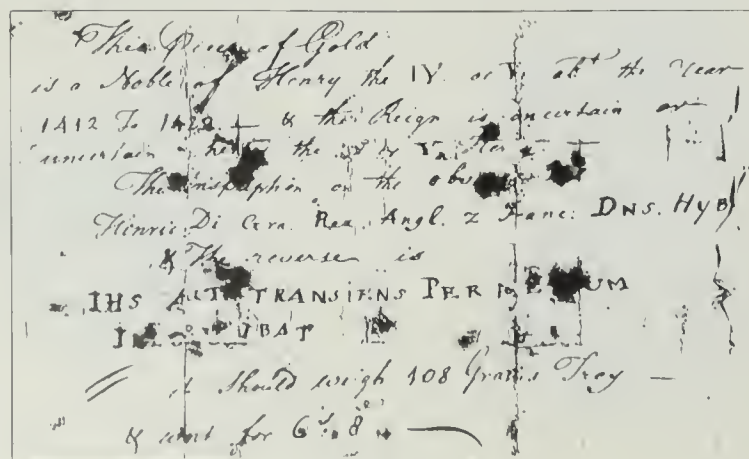 This Piece of Gold
is a Noble of Henry the IV or V abt the Year
1412 To 1422 & the Reign is uncertain or
uncertain the
The inscription on the obverse
Henric Di Gra. Rex. Angl. z Franc. DNS. HyB
& The reverse is
IHS AUT TRANSIENS PER M UM
I BAT
it should weigh 108 Grains Troy —
& went for 6s. 8